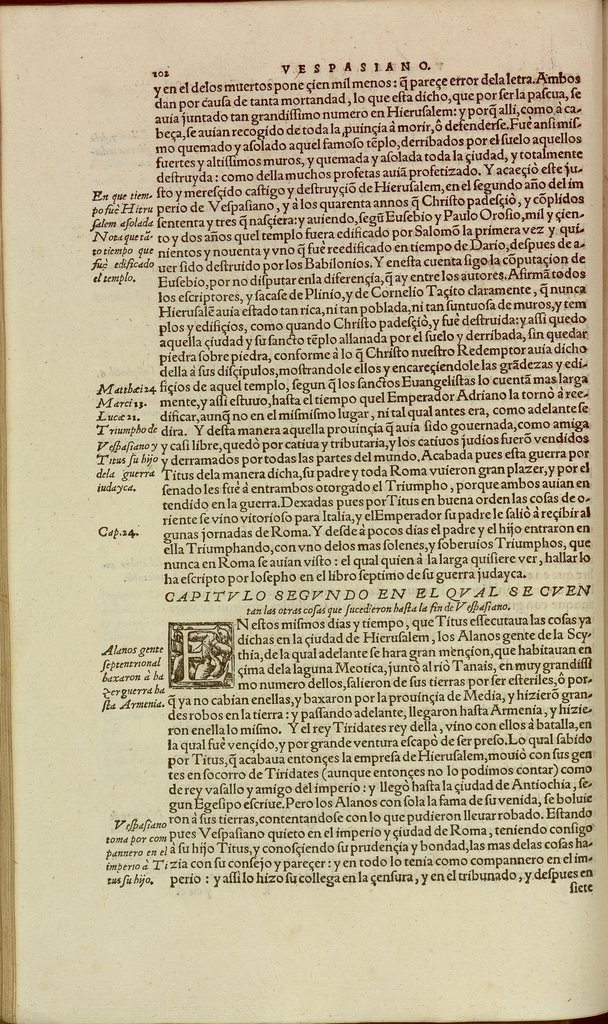 102
VESPASIANO.
y en el delos muertos pone çien mil menos: q̃ pareçe error dela letra. Ambos
dan por causa de tanta mortandad, lo que esta dicho, que por ser la pascua, se
auia juntado tan grandissimo numero en Hierusalem: y porq̃ alli, como à ca-
beça, se auian recogido de toda la ꝓuinçia à morir, ò defenderse. Fuè ansi mis-
mo quemado y asolado aquel famoso tẽplo, derribados por el suelo aquellos
fuertes y altissimos muros, y quemada y asolada toda la çiudad, y totalmente
destruyda: como della muchos profetas auiã profetizado. Y acaeçiò este ju-
sto y meresçido castigo y destruyçiõ de Hierusalem, en el segundo año del im
perio de Vespasiano, y à los quarenta annos q̃ Christo padesçiò, y cõplidos
sententa y tres q̃ nasçiera: y auiendo, segũ Eusebio y Paulo Orosio, mil y çien-
to y dos años quel templo fuera edificado por Salomõ la primera vez y qui-
nientos y nouenta y vno q̃ fuè reedificado en tiempo de Dario, despues de a-
uer sido destruido por los Babilonios. Y en esta cuenta sigo la cõputaçion de
Eusebio, por no disputar enla diferençia, q̃ ay entre los autores. Afirmã todos
los escriptores, y sacase de Plinio, y de Cornelio Taçito claramente, q̃ nunca
Hierusalẽ auia estado tan rica, ni tan poblada, ni tan suntuosa de muros, y tem
plos y edifiçios, como quando Christo padesçiò, y fuè destruida: y assi quedo
aquella çiudad y su sancto tẽplo allanada por el suelo y derribada, sin quedar
piedra sobre piedra, conforme à lo q̃ Christo nuestro Redemptor auia dicho
della à sus disçipulos, mostrandole ellos y encareçiendole las grãdezas y edi-
fiçios de aquel templo, segun q̃ los sanctos Euangelistas lo cuentã mas larga
mente, y assi estuuo, hasta el tiempo quel Emperador Adriano la tornò à ree-
dificar, aunq̃ no en el mismismo lugar, ni tal qual antes era, como adelante se
dira. Y desta manera aquella prouinçia q̃ auia sido gouernada, como amiga
y casi libre, quedò por catiua y tributaria, y los catiuos judios fuerõ vendidos
y derramados por todas las partes del mundo. Acabada pues esta guerra por
Titus dela manera dicha, su padre y toda Roma vuieron gran plazer, y por el
senado les fuè à entrambos otorgado el Triumpho, porque ambos auian en-
tendido en la guerra. Dexadas pues por Titus en buena orden las cosas de o-
riente se vino vitorioso para Italia, y el Emperador su padre le saliò à reçibir al
gunas jornadas de Roma. Y desde à pocos dias el padre y el hijo entraron en
ella Triumphando, con vno delos mas solenes, y soberuios Triumphos, que
nunca en Roma se auian visto: el qual quien à la larga quisiere ver, hallar lo
ha escripto por Iosepho en el libro septimo de su guerra judayca.
En que tiem-
po fuè Hieru
salem asolada
Nota que tã-
to tiempo que
fuè edificado
el templo.
Matthæi 24
Marci 13.
Lucæ 21.
Triumpho de
Vespasiano y
Titus su hijo
dela guerra
iudayca.
Cap. 24.
CAPITVLO SEGVNDO EN EL QVAL SE CVEN
tan las otras cosas que sucedieron hasta la fin de Vespasiano.
EN estos mismos dias y tiempo, que Titus essecutaua las cosas ya
dichas en la çiudad de Hierusalem, los Alanos gente de la Scy-
thia, de la qual adelante se hara gran mençion, que habitauan en
çima dela laguna Meotica, juntò al riò Tanais, en muy grandissi
mo numero dellos, salieron de sus tierras por ser esteriles, ò por-
q̃ ya no cabian enellas, y baxaron por la prouinçia de Media, y hizierõ gran-
des robos en la tierra: y passando adelante, llegaron hasta Armenia, y hizie-
ron enella lo mismo. Y el rey Tiridates rey della, vino con ellos à batalla, en
la qual fuè vençido, y por grande ventura escapò de ser preso. Lo qual sabido
por Titus, q̃ acabaua entonçes la empresa de Hierusalem, mouiò con sus gen
tes en socorro de Tiridates (aunque entonçes no lo podimos contar) como
de rey vasallo y amigo del imperio: y llegò hasta la çiudad de Antiochia, se-
gun Egesipo escriue. Pero los Alanos con sola la fama de su venida, se boluie
ron à sus tierras, contentandose con lo que pudieron lleuar robado. Estando
pues Vespasiano quieto en el imperio y çiudad de Roma, teniendo consigo
à su hijo Titus, y conosçiendo su prudençia y bondad, las mas delas cosas ha-
zia con su consejo y pareçer: y en todo lo tenia como compannero en el im-
perio: y assi lo hizo su collega en la çensura, y en el tribunado, y despues en
siete
Alanos gente
septentrional
baxaron à ha
zer guerra ha
sta Armenia.
Vespasiano
toma por com
pannero en el
imperio à Ti
tus su hijo.